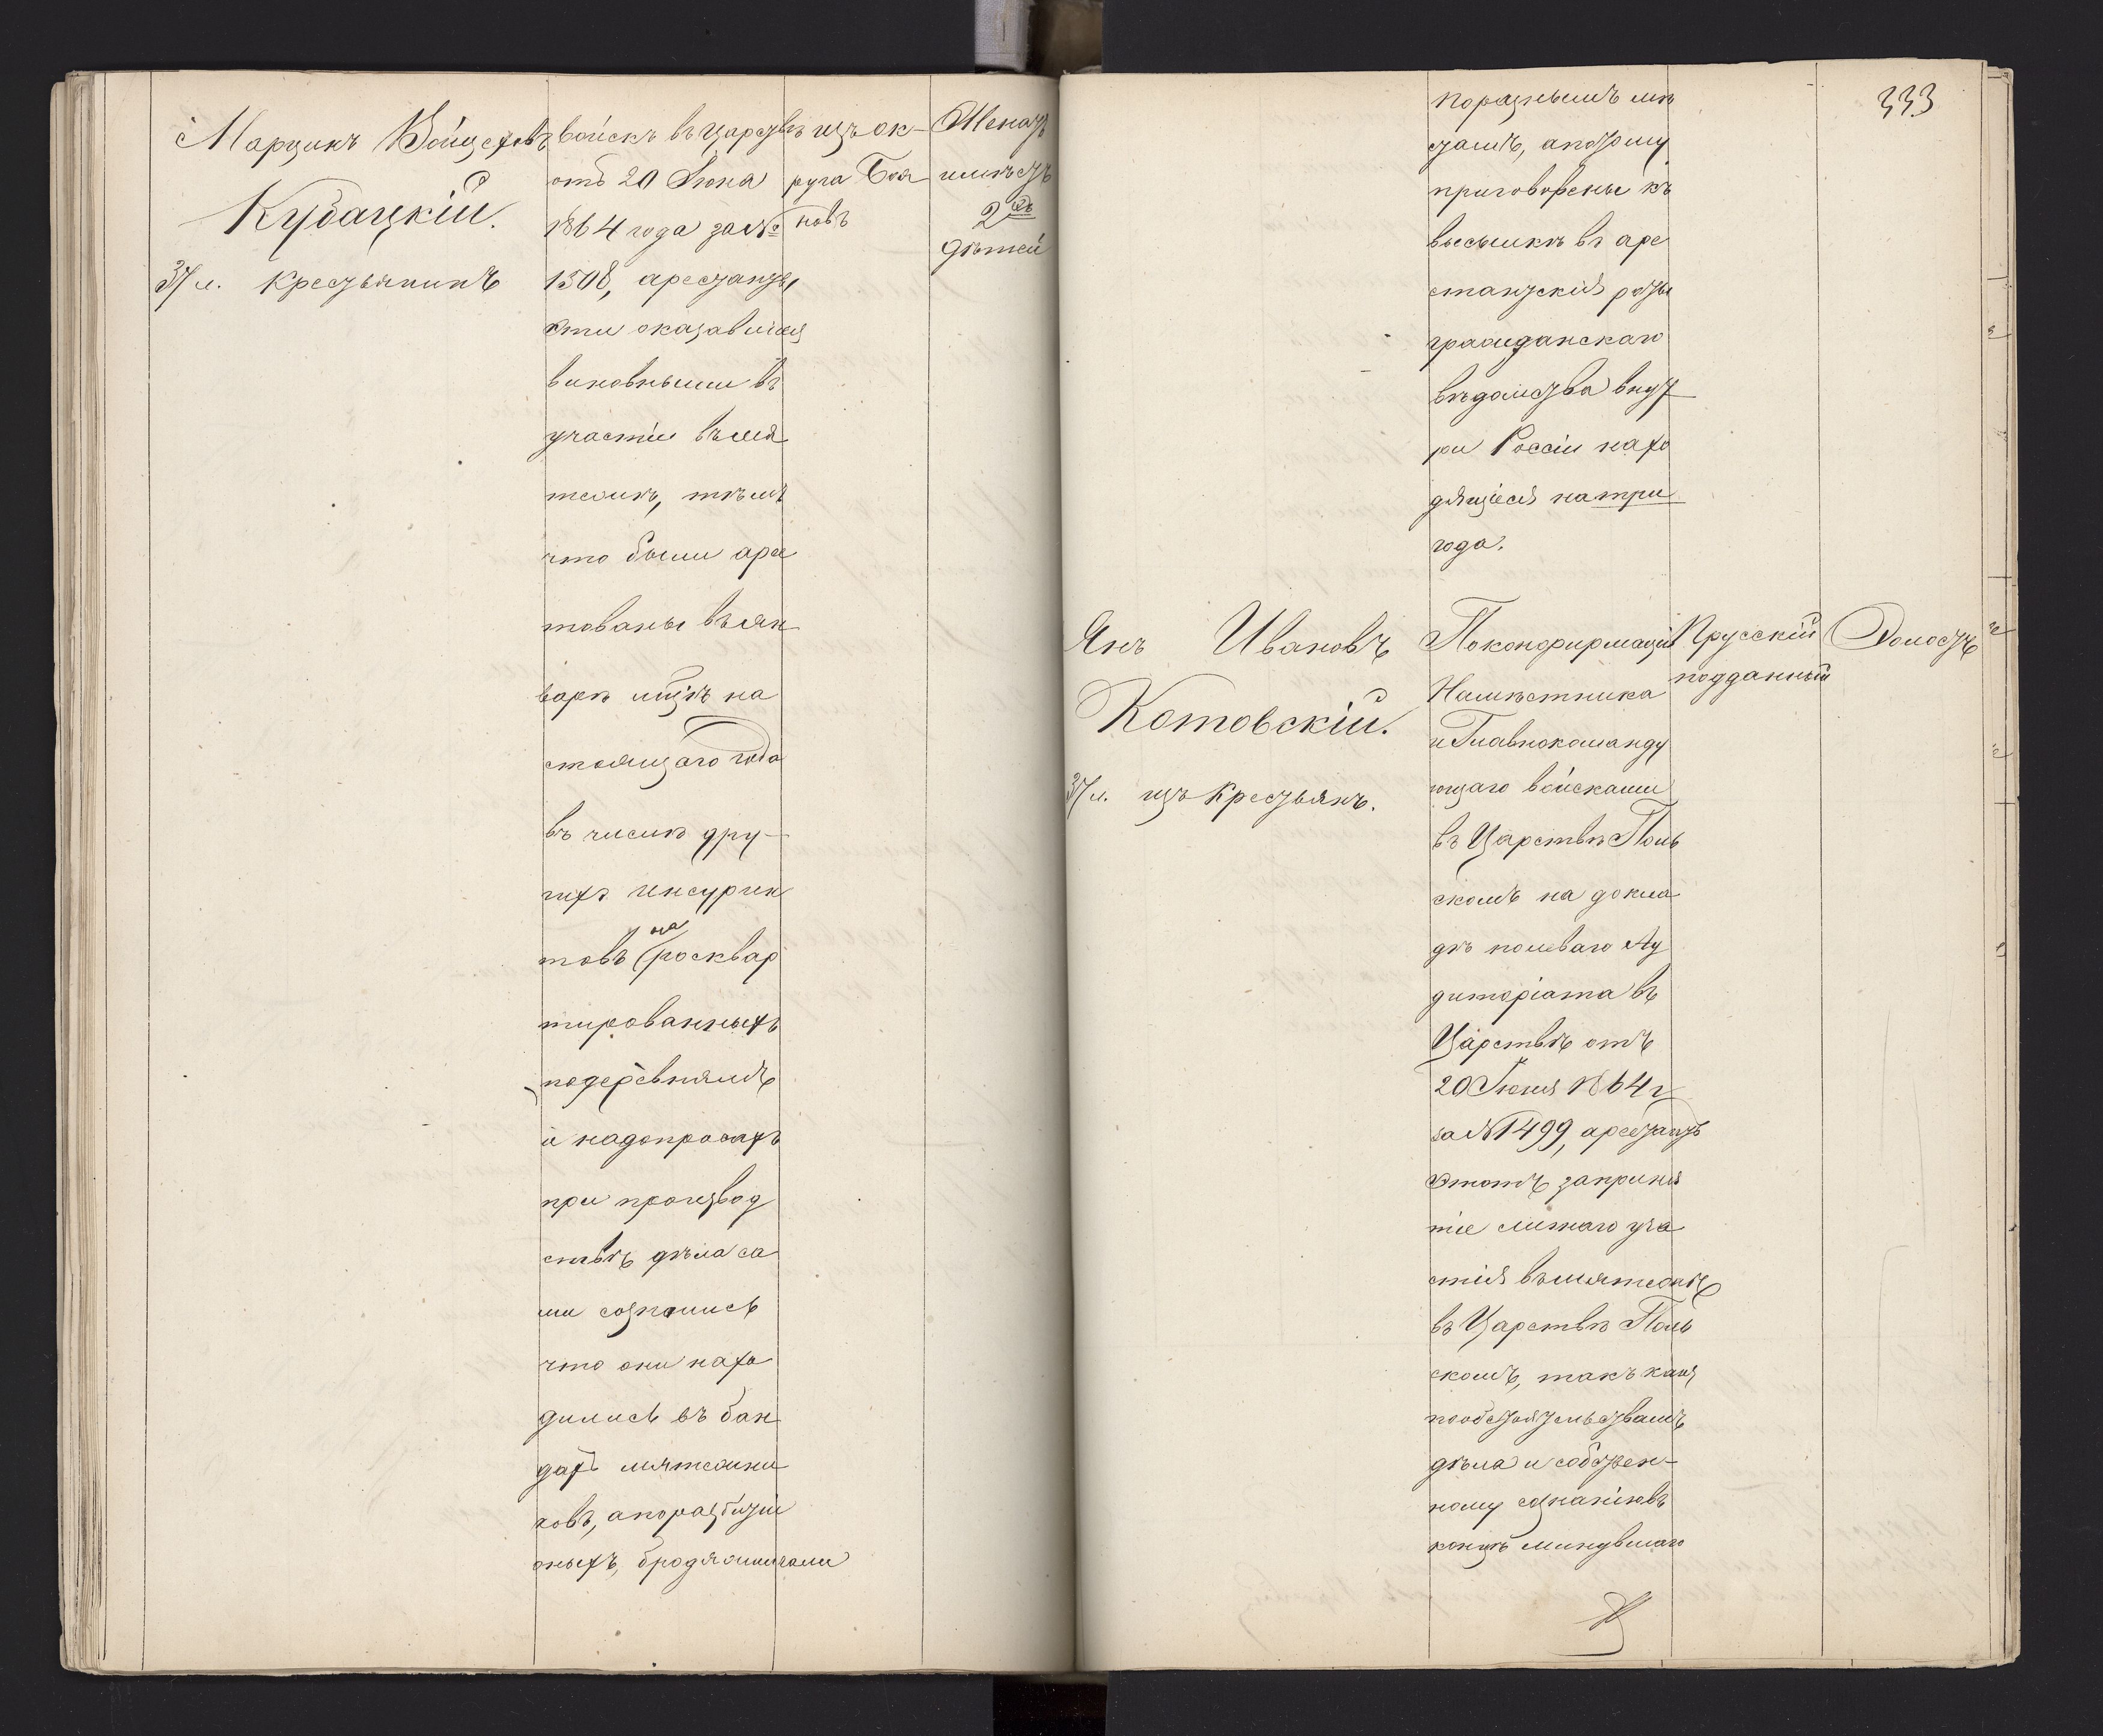 Марцинъ Войцеховъ
Кубацкій.
37 л. Крестьянинъ
войскъ въ Царствѣ
отъ 20 Іюня
1864 года за №
1508, арестанты
эти оказавшіяся
виновными въ
участіи въ мя
тежѣ, тѣмъ
что были арес
тованы въ ян
варѣ м-цѣ на
стоящаго года
въ числѣ дру-
гихъ инсурген
товъ на росквар
тированныхъ
по деревнямъ
и на допросахъ
при производ
ствѣ дѣла са
ми сознались
что они нахо
дились въ бан
дахъ мятежни
ковъ, а по разбитіи
оныхъ, бродяжничали
изъ ок-
руга Боя
новъ
Женатъ
имѣетъ
2хъ
дѣтей
333
по разнымъ мѣ
стамъ, а потому
приговорены къ
высылкѣ въ аре
стантскія роты
гражданскаго
вѣдомства внут
ри Россіи нахо
дящіеся на три
года.
Янъ Ивановъ
Котовскій.
37 л. изъ Крестьянъ.
По конфирмаціи
Намѣстника
и Главнокоманду
ющаго войсками
въ Царствѣ Поль
скомъ на докла
дѣ полеваго Ау
диторіата въ
Царствѣ отъ
20 Іюня 1864 г
за № 1499, арестантъ
этотъ за приня
тіе личнаго уча
стія въ мятежѣ
въ Царствѣ Поль
скомъ, такъ какъ
по обстоятельствамъ
дѣла и собствен-
ному сознанію въ
концѣ минувшаго
Прусскій
подданный
Холостъ